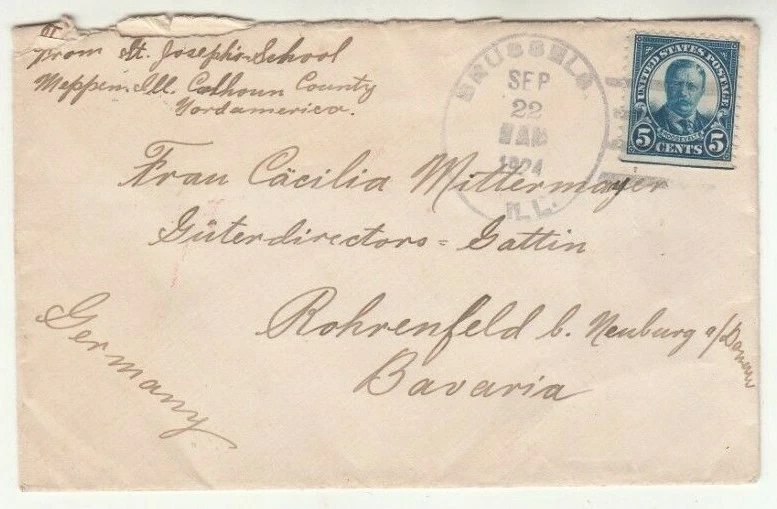 From St. Joseph's School
Meppen, Ill. Calhoun County
Nordamerica.
BRUSSELS
SEP
22
1924
ILL.
UNITED STATES POSTAGE
ROOSEVELT
5 CENTS 5
Frau Cäcilia Mittermayer
Güterdirectors = Gattin
Rohrenfeld b. Neuburg a/Donau
Bavaria
Germany